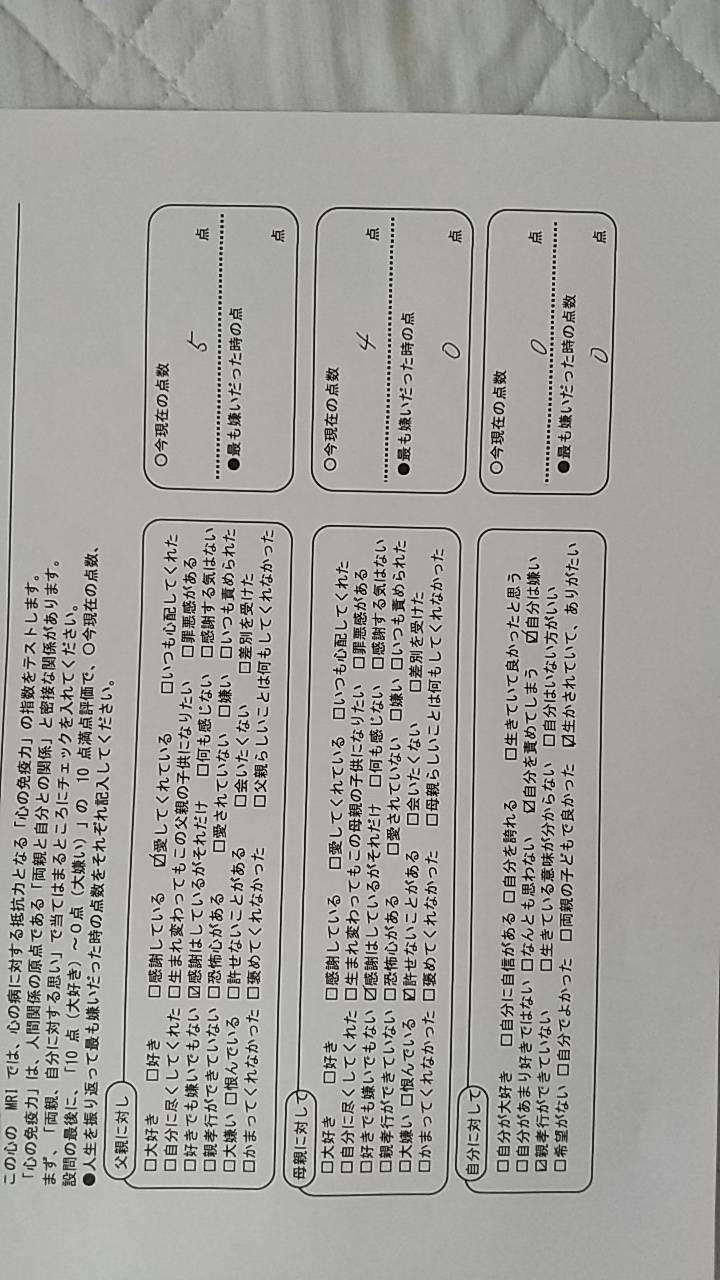 この心の MRI では、心の病に対する抵抗力となる「心の免疫力」の指数をテストします。
「心の免疫力」は、人間関係の原点である「両親と自分との関係」と密接な関係があります。
まず、「両親、自分に対する思い」で当てはまるところにチェックを入れてください。
設問の最後に、「10 点（大好き）～0点（大嫌い）」の 10 点満点評価で、○今現在の点数、
●人生を振り返って最も嫌いだった時の点数をそれぞれ記入してください。
父親に対し
□大好き □好き □感謝している ☑愛してくれている □いつも心配してくれた
□自分に尽くしてくれた □生まれ変わってもこの父親の子供になりたい □罪悪感がある
□好きでも嫌いでもない ☑感謝はしているがそれだけ □何も感じない □感謝する気はない
□親孝行ができていない □恐怖心がある □愛されていない □嫌い □いつも責められた
□大嫌い □恨んでいる □許せないことがある □会いたくない □差別を受けた
□かまってくれなかった □褒めてくれなかった □父親らしいことは何もしてくれなかった
○今現在の点数
5 点
●最も嫌いだった時の点
点
母親に対して
□大好き □好き □感謝している □愛してくれている □いつも心配してくれた
□自分に尽くしてくれた □生まれ変わってもこの母親の子供になりたい □罪悪感がある
□好きでも嫌いでもない ☑感謝はしているがそれだけ □何も感じない □感謝する気はない
□親孝行ができていない □恐怖心がある □愛されていない □嫌い □いつも責められた
□大嫌い □恨んでいる ☑許せないことがある □会いたくない □差別を受けた
□かまってくれなかった □褒めてくれなかった □母親らしいことは何もしてくれなかった
○今現在の点数
4 点
●最も嫌いだった時の点
0 点
自分に対して
□自分が大好き □自分に自信がある □自分を誇れる □生きていて良かったと思う
□自分があまり好きではない □なんとも思わない ☑自分を責めてしまう ☑自分は嫌い
☑親孝行ができていない □生きている意味が分からない □自分はいない方がいい
□希望がない □自分でよかった □両親の子どもで良かった ☑生かされていて、ありがたい
○今現在の点数
0 点
●最も嫌いだった時の点数
0 点